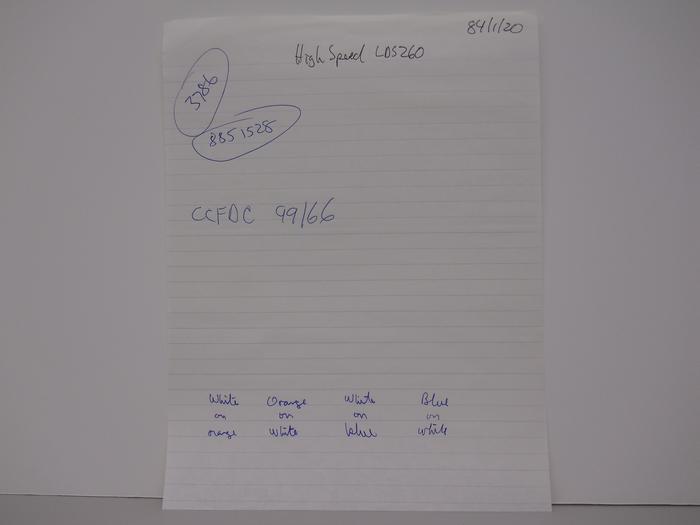 84/1/20
High Speed LDS260
3786
8851528
CCFDC 99/66
White Orange White Blue
on on on on
orange White blue white